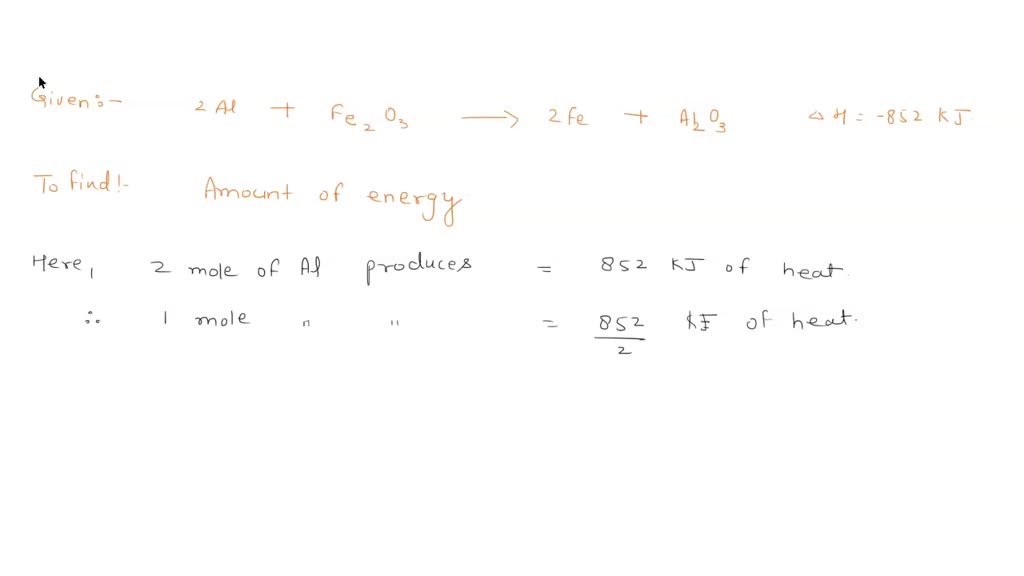 Given:- 2 Al + Fe2O3 ⟶ 2 Fe + Al2O3 ΔH = -852 KJ
To find!- Amount of energy
Here, 2 mole of Al produces = 852 KJ of heat.
∴ 1 mole " " = 852/2 KJ of heat.